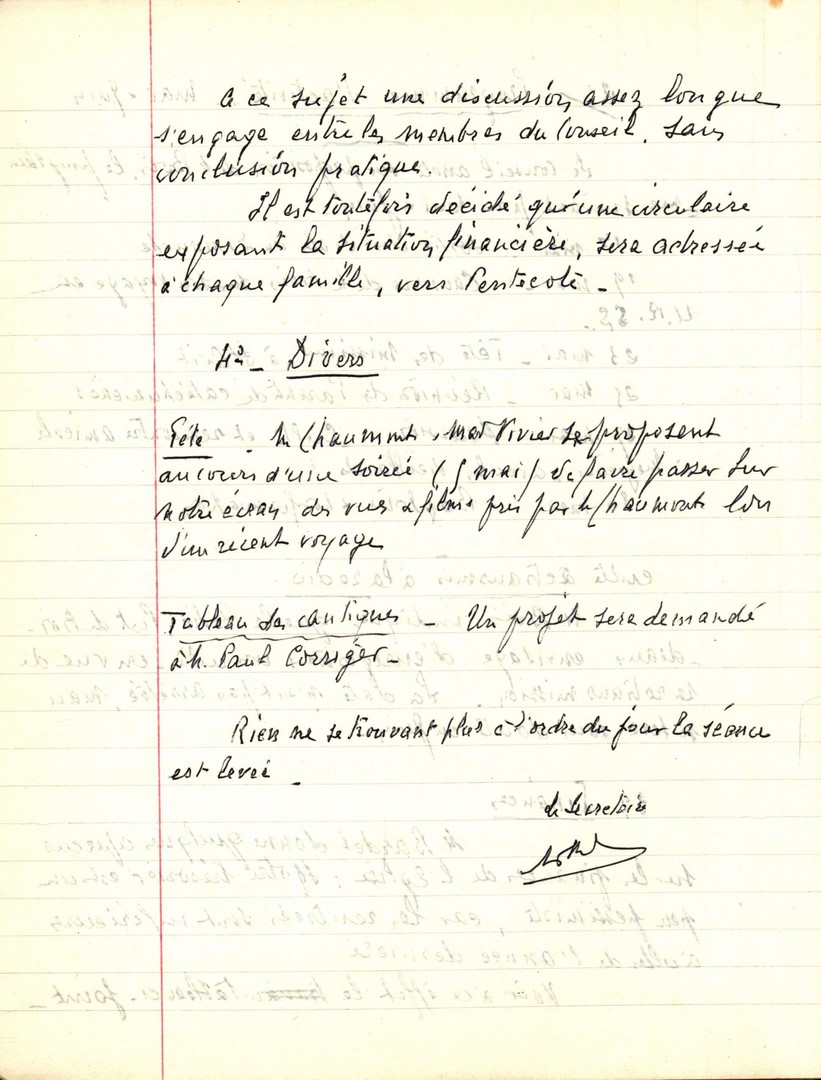 A ce sujet une discussion, assez longue
s'engage entre les membres du Conseil, sans
conclusion pratique.
Il est toutefois décidé qu'une circulaire
exposant la situation financière, sera adressée
à chaque famille, vers Pentecôte -
4º - Divers
Fête - M Chaumont, Mar Vivier se proposent
au cours d'une soirée (5 mai) de faire passer sur
notre écran des vues & films pris par M Chaumont lors
d'un récent voyage
Tableau des cantiques - Un projet sera demandé
à M. Paul Corriger -
Rien ne se trouvant plus à l'ordre du jour la séance
est levée -
Le Secrétaire